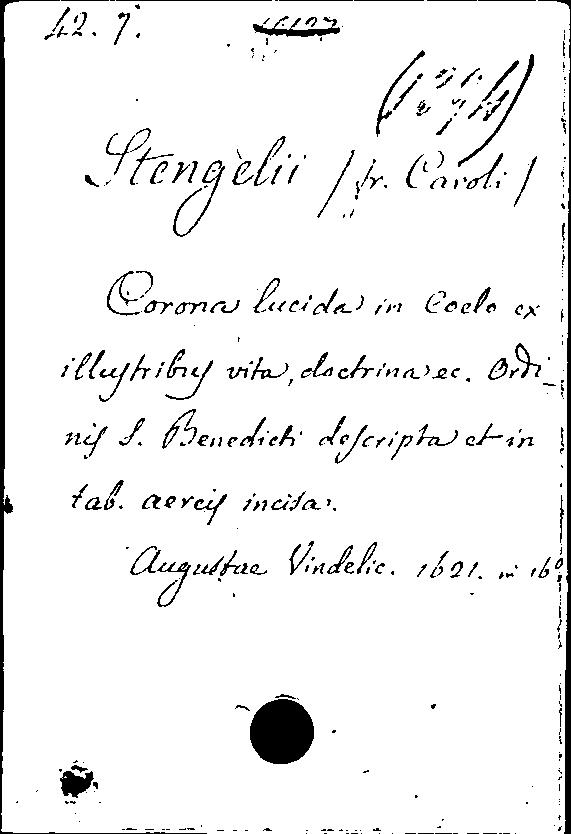 42. 7.
Stengelii /fr. Caroli/
Corona lucida in Coelo ex
illustribus vita, doctrina ec. Ordi-
nis S. Benedicti descripta et in
tab. aereis incisa.
Augustae Vindelic. 1621. in 16º